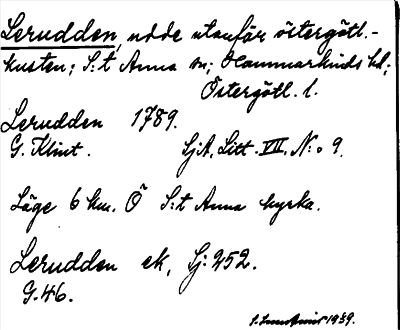 Lerudden, udde utanför östergötl.-
kusten; S:t Anna sn; Hammarkinds hd;
Östergötl. l.
Lerudden 1789.
G. Klint. SjA, Litt. VII, N:o 9.
Läge 6 km. Ö S:t Anna kyrka.
Lerudden ek, Sj: 252.
G.46.
1939.